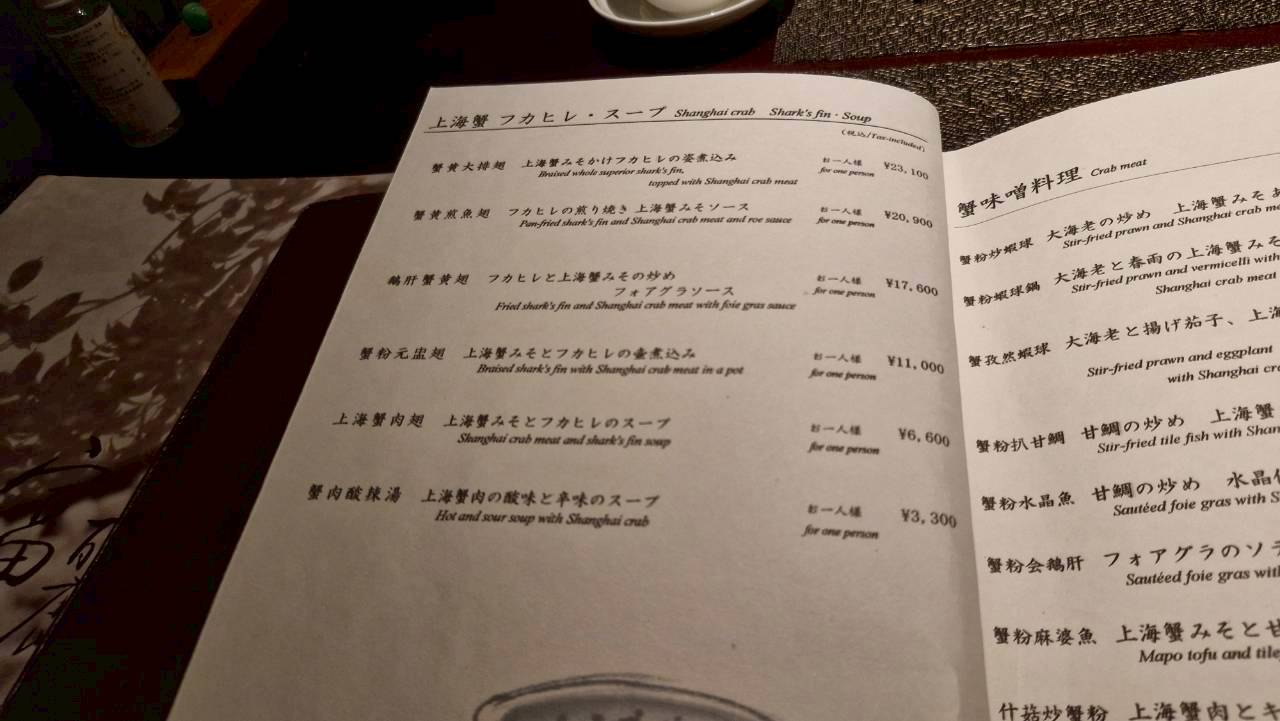 上海蟹 フカヒレ・スープ Shanghai crab Shark's fin · Soup
(税込/Tax-included)
蟹黄大排翅 上海蟹みそかけフカヒレの姿煮込み お一人様 ¥23,100
Braised whole superior shark's fin, for one person
topped with Shanghai crab meat
蟹黄煎魚翅 フカヒレの煎り焼き 上海蟹みそソース お一人様 ¥20,900
Pan-fried shark's fin and Shanghai crab meat and roe sauce for one person
鵝肝蟹黄翅 フカヒレと上海蟹みその炒め お一人様 ¥17,600
フォアグラソース for one person
Fried shark's fin and Shanghai crab meat with foie gras sauce
蟹粉元盅翅 上海蟹みそとフカヒレの壷煮込み お一人様 ¥11,000
Braised shark's fin with Shanghai crab meat in a pot for one person
上海蟹肉翅 上海蟹みそとフカヒレのスープ お一人様 ¥6,600
Shanghai crab meat and shark's fin soup for one person
蟹肉酸辣湯 上海蟹肉の酸味と辛味のスープ お一人様 ¥3,300
Hot and sour soup with Shanghai crab for one person
蟹味噌料理 Crab meat
蟹粉炒蝦球 大海老の炒め 上海蟹みそ
Stir-fried prawn and Shanghai crab
蟹粉蝦球鍋 大海老と春雨の上海蟹みそ
Stir-fried prawn and vermicelli with
Shanghai crab meat
蟹孜然蝦球 大海老と揚げ茄子、上海
Stir-fried prawn and eggplant
with Shanghai
蟹粉扒甘鯛 甘鯛の炒め 上海蟹
Stir-fried tile fish with
蟹粉水晶魚 甘鯛の炒め 水晶
Sautéed foie gras with
蟹粉会鵝肝 フォアグラのソテ
Sautéed foie gras with
蟹粉麻婆魚 上海蟹みそと甘
Mapo tofu and tile
什菇炒蟹粉 上海蟹肉とキ